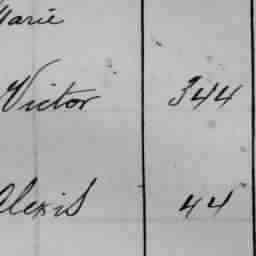 Marie
Victor 344
Alexis 44